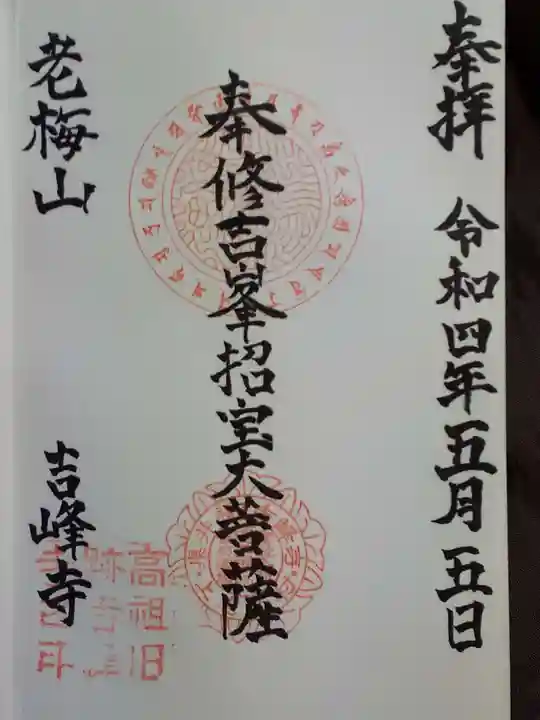 奉拝 令和四年五月五日
奉修吉峯招宝大菩薩
老梅山 吉峰寺
高祖旧
跡吉峰